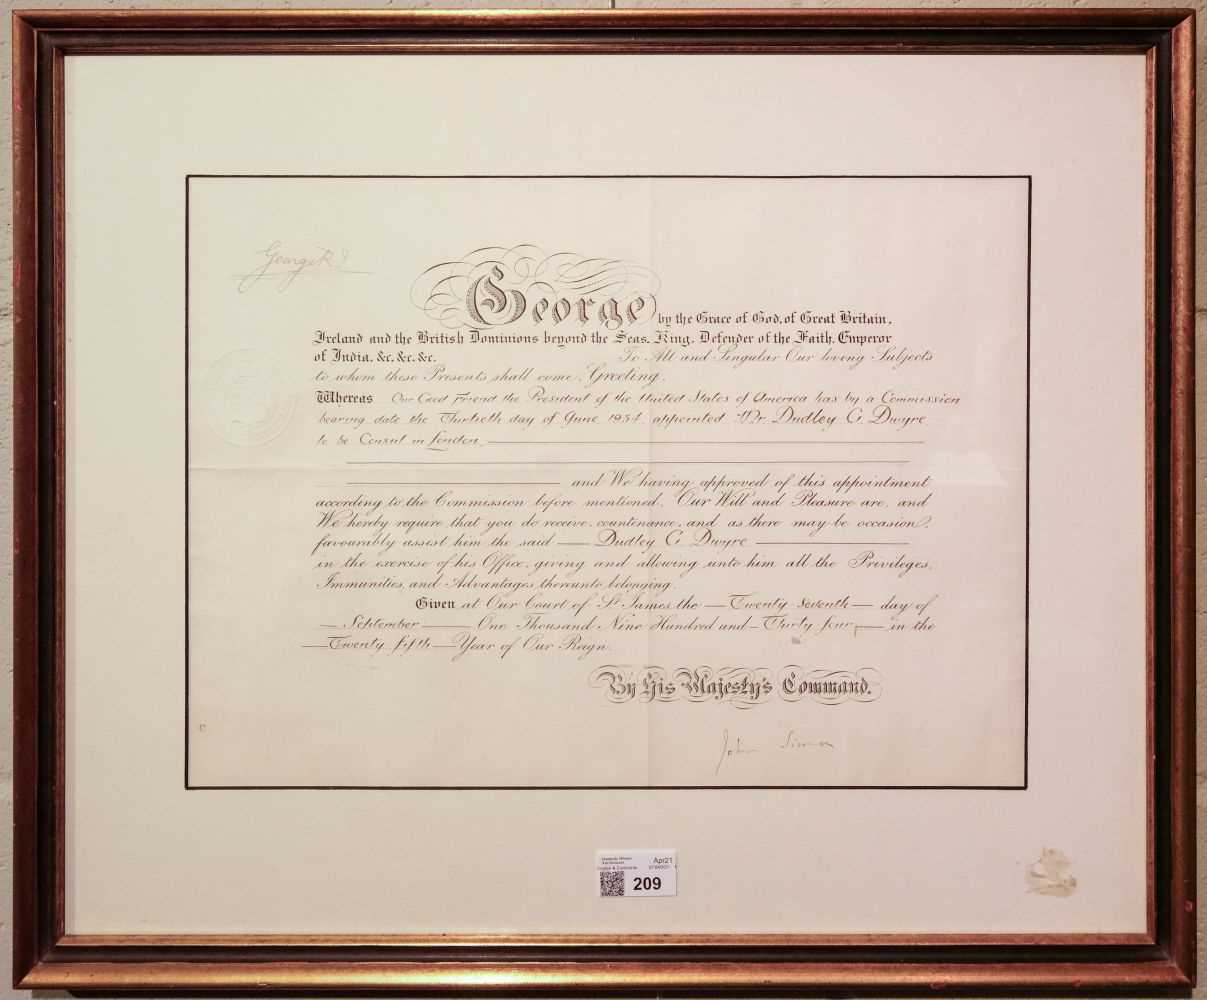 George R I
George by the Grace of God, of Great Britain,
Ireland and the British Dominions beyond the Seas, King, Defender of the Faith, Emperor
of India, &c, &c, &c. To All and Singular Our loving Subjects
to whom these Presents shall come, Greeting.
Whereas Our Good Friend the President of the United States of America has by a Commission
bearing date the Thirtieth day of June 1934, appointed Mr. Dudley G. Dwyre
to be Consul in London
and We having approved of this appointment
according to the Commission before mentioned, Our Will and Pleasure are, and
We hereby require that you do receive, countenance, and as there may be occasion,
favourably assist him the said Dudley G. Dwyre
in the exercise of his Office, giving and allowing unto him all the Privileges,
Immunities, and Advantages thereunto belonging.
Given at Our Court of St. James, the Twenty seventh day of
September One Thousand Nine Hundred and Thirty four, in the
Twenty fifth Year of Our Reign.
By His Majesty's Command.
John Simon
Apr21
209